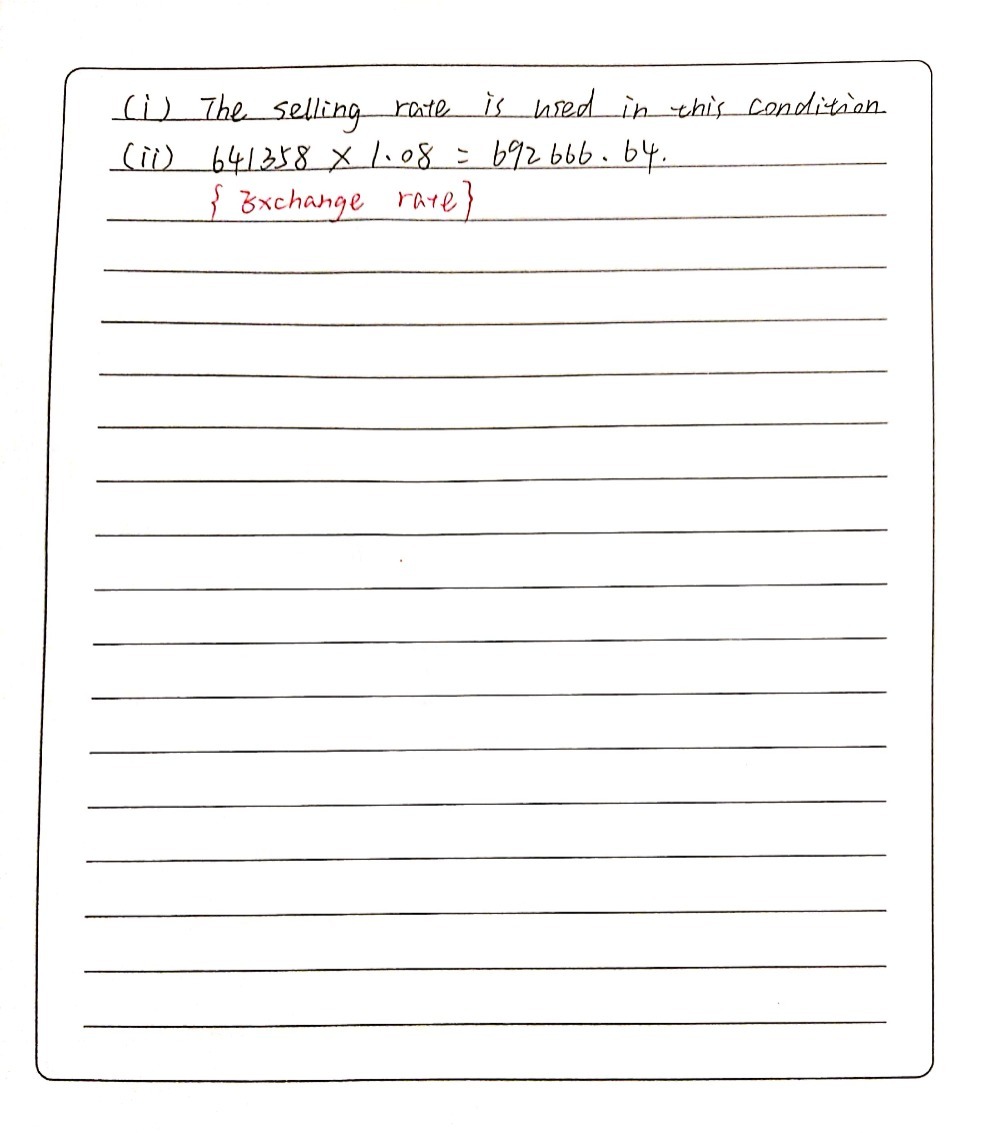 (i) The selling rate is used in this condition
(ii) 641358 × 1.08 = 692666.64.
{Exchange rate}